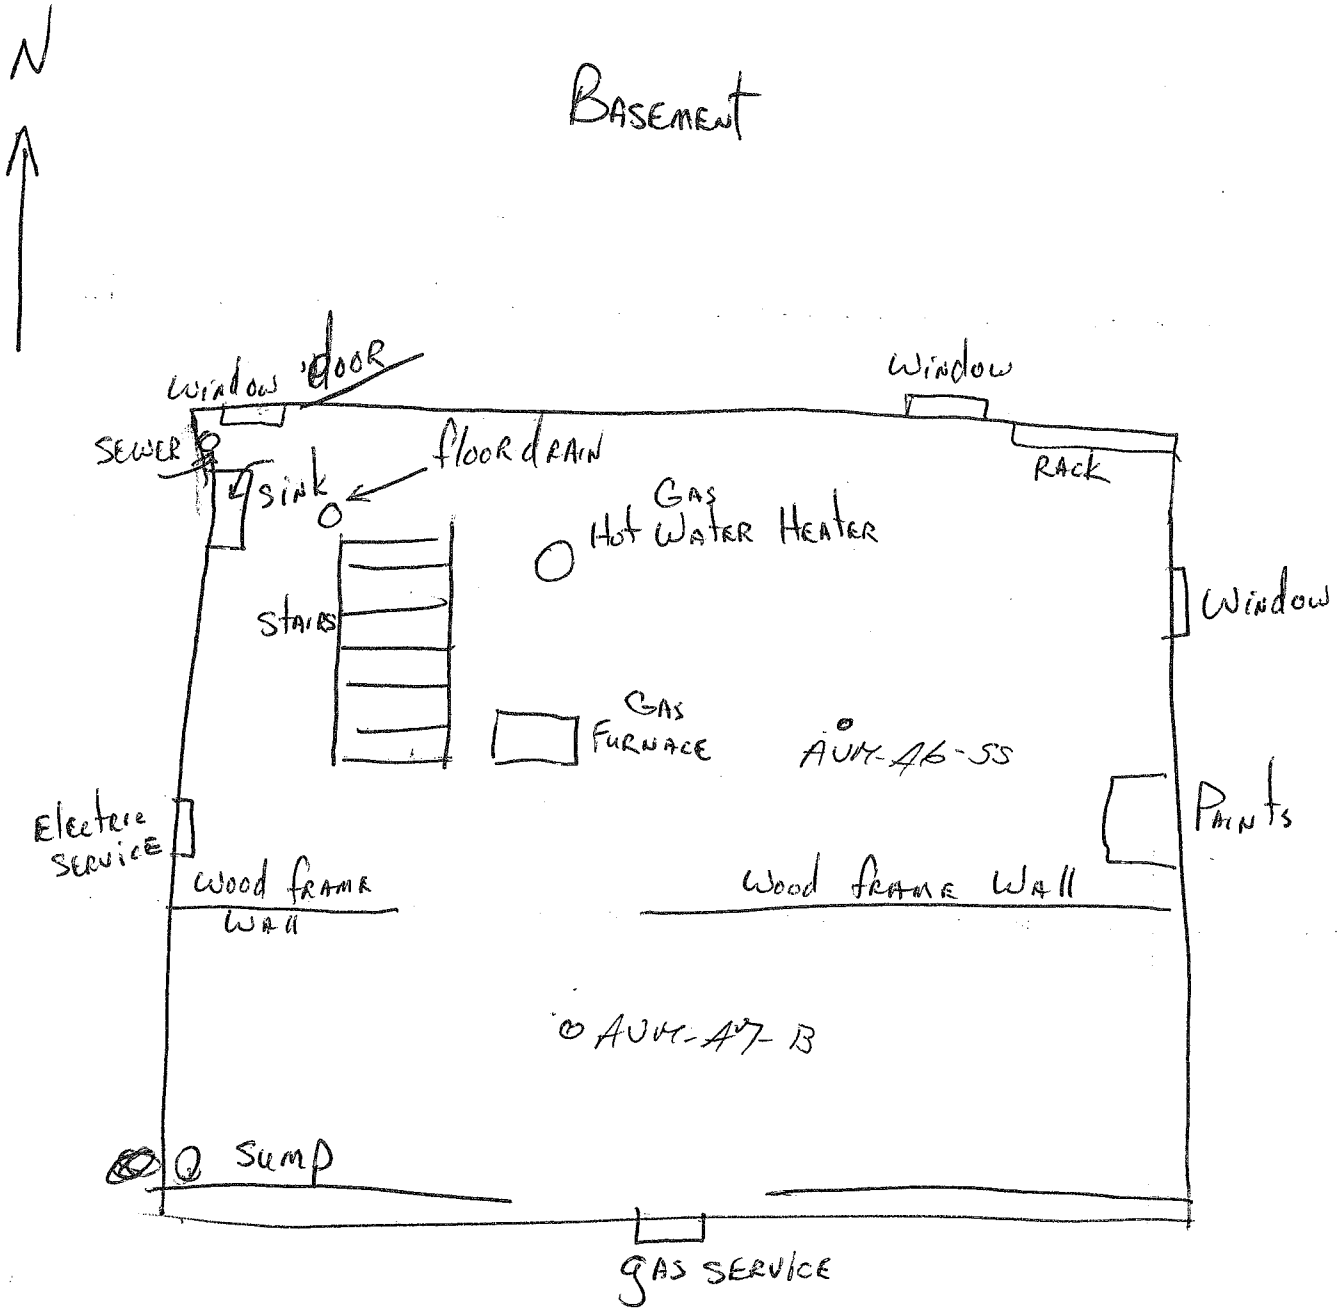 N
BASEMENT
Window
dOOR
Window
SEWER
flOOR dRAIN
SiNk
RACK
GAS
Hot WAtER HEAtER
Window
StAiRS
GAS
FURNACE
AUM-A6-SS
PAiNts
Electric
SERViCE
Wood fRAME
WAll
Wood fRAME WAll
AUM-A7-B
SumP
gAS SERViCE